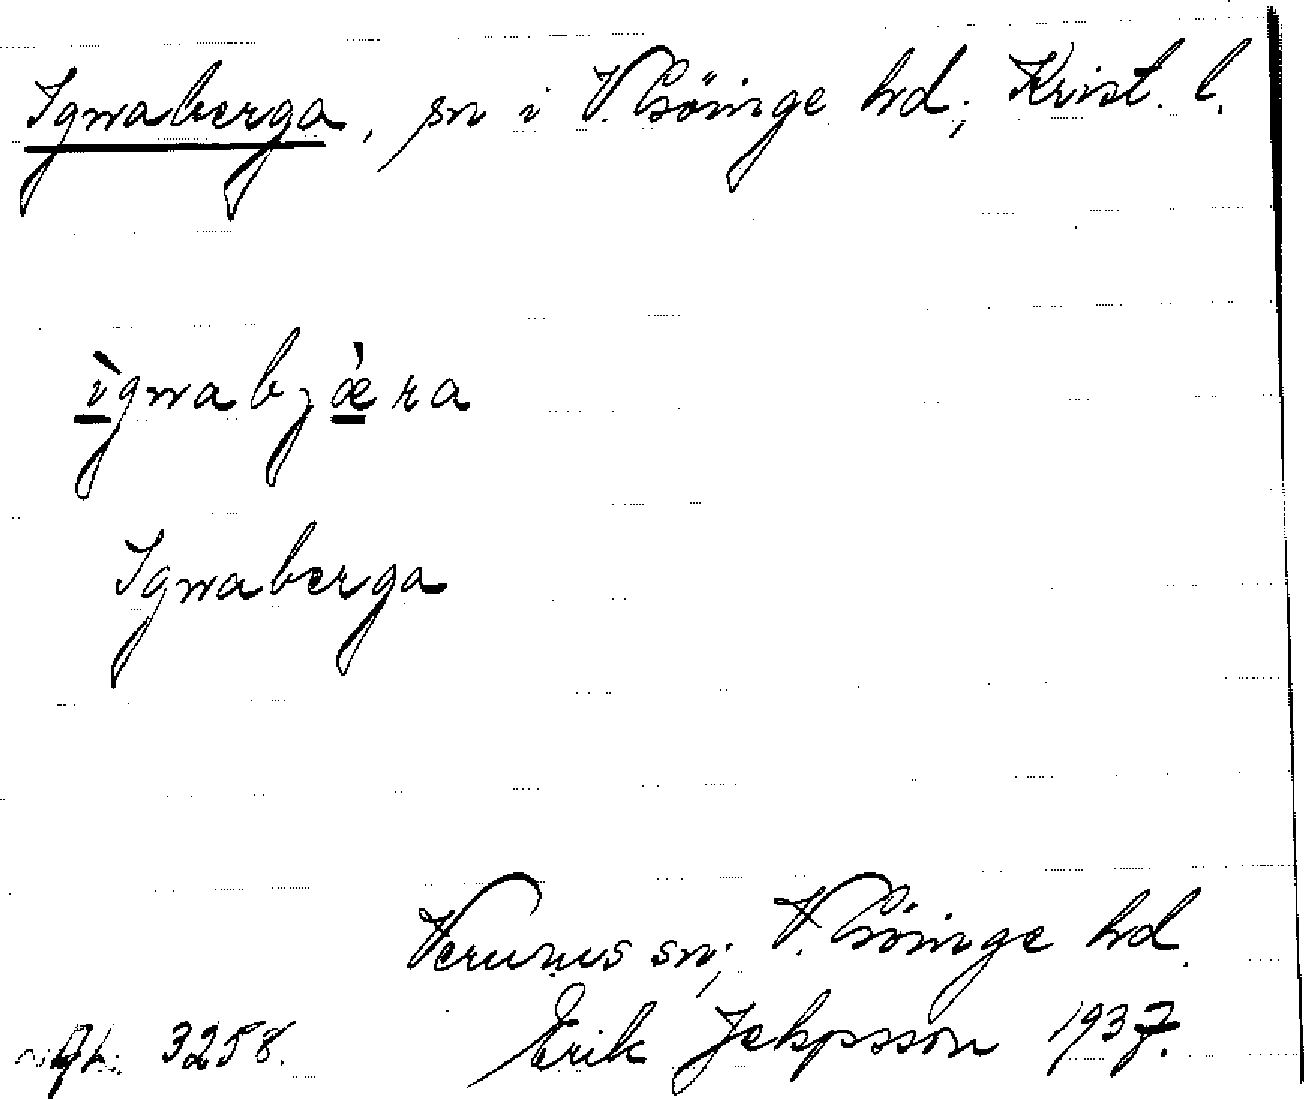 Ignaberga, sn i V. Göinge hd; Krist. l.
ìgnabjæ̀ra
Ignaberga
Verums sn; V. Göinge hd.
Erik Jeppsson 1937.
3258.